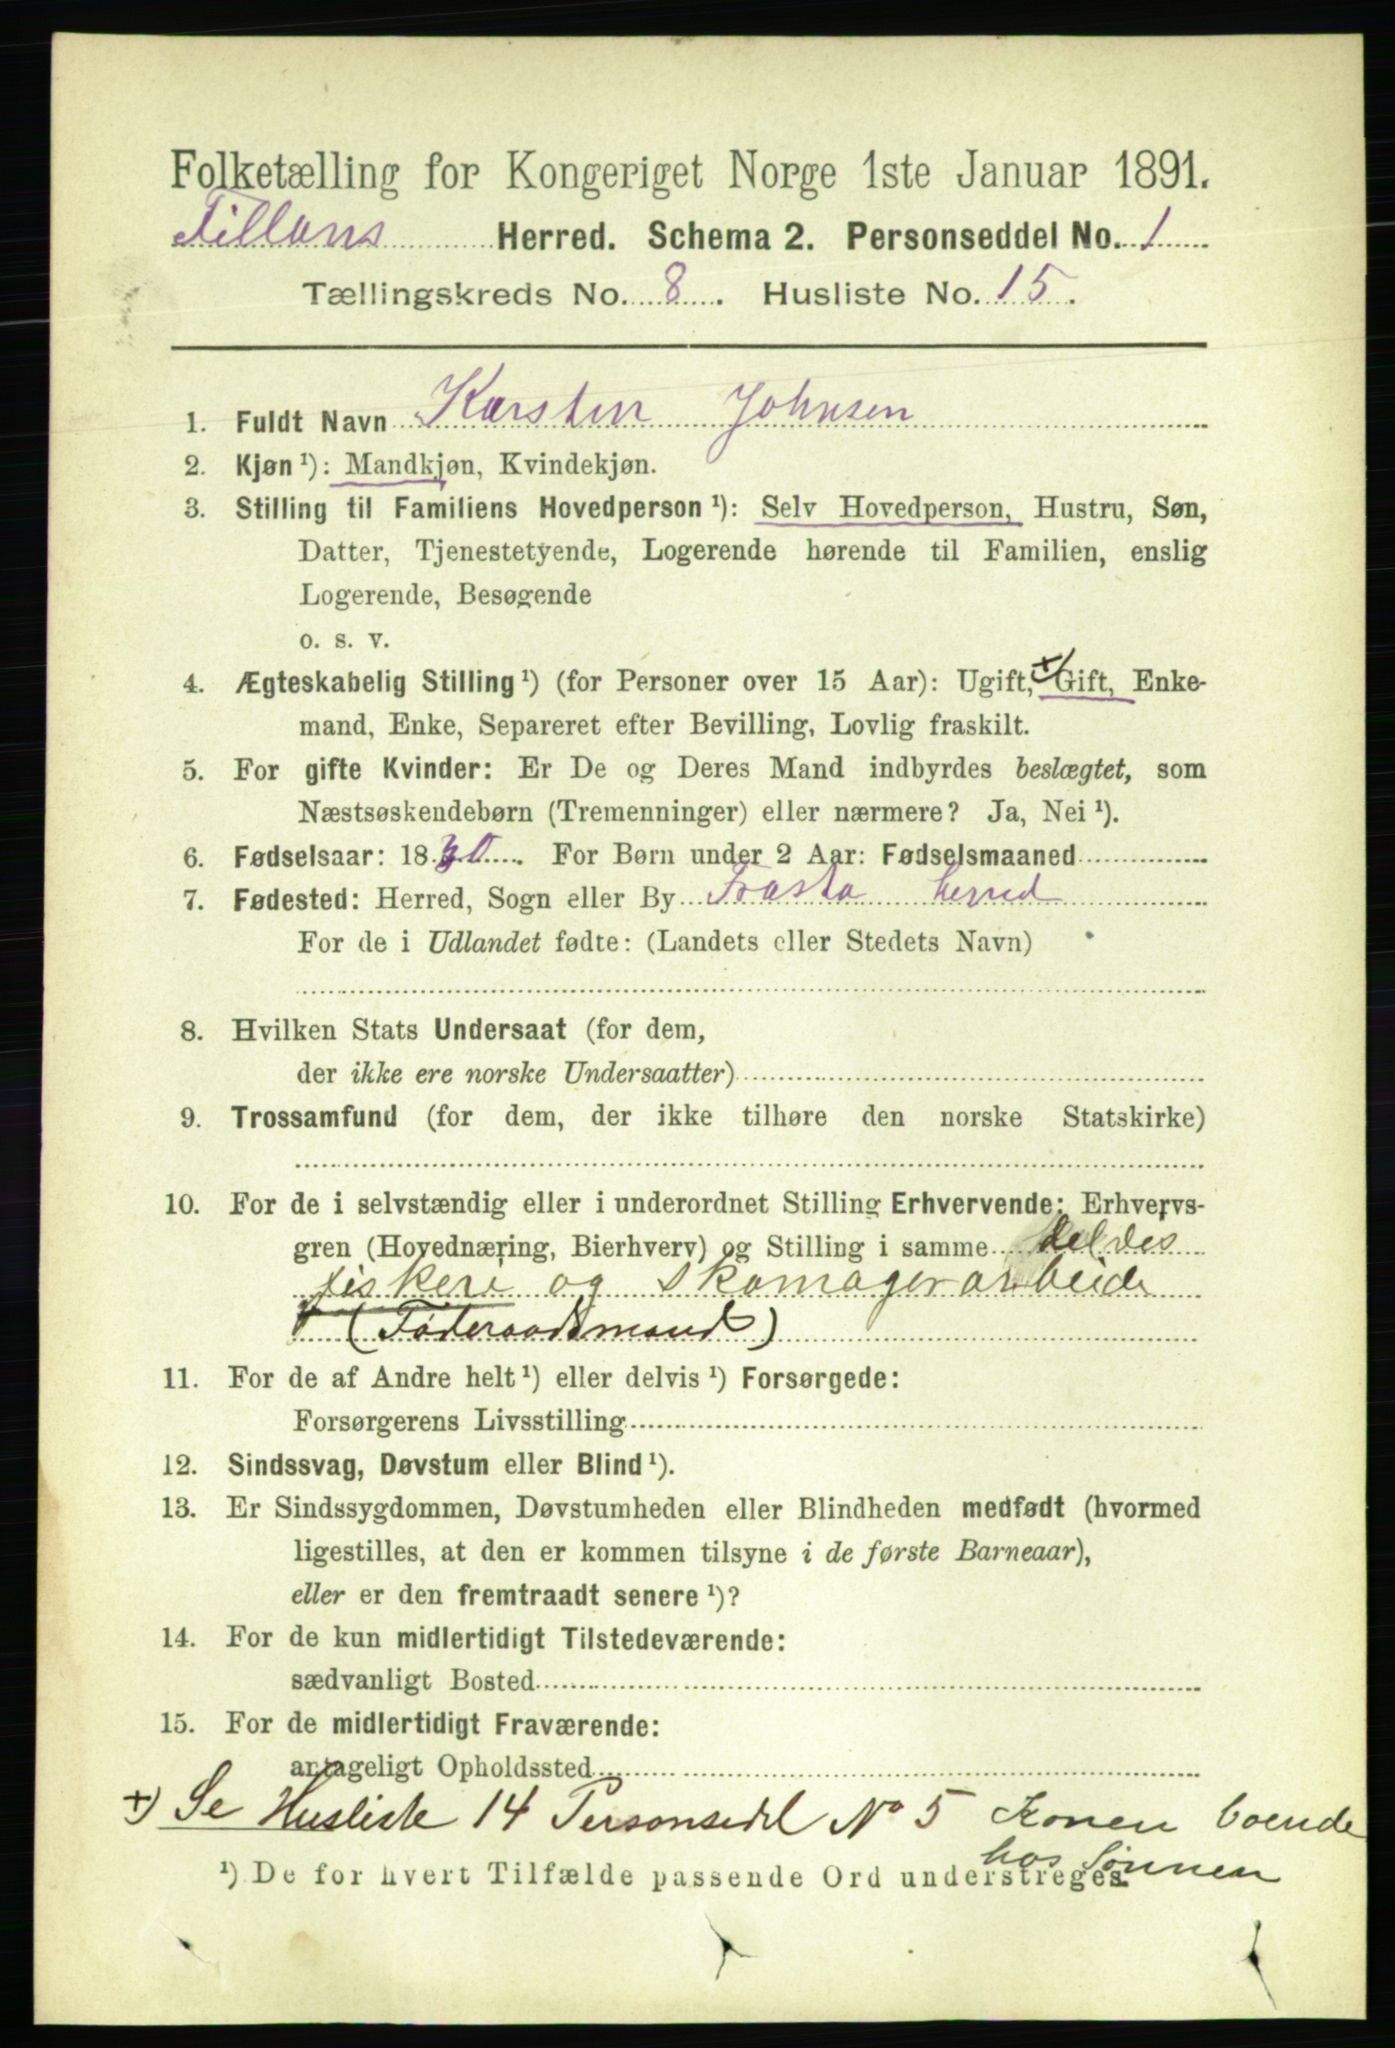 Folketælling for Kongeriget Norge 1ste Januar 1891.
Fillans Herred. Schema 2. Personseddel No. 1
Tællingskreds No. 8. Husliste No. 15.
1. Fuldt Navn Karsten Johnsen
2. Kjøn ¹): Mandkjøn, Kvindekjøn.
3. Stilling til Familiens Hovedperson ¹): Selv Hovedperson, Hustru, Søn,
Datter, Tjenestetyende, Logerende hørende til Familien, enslig
Logerende, Besøgende
o. s. v.
4. Ægteskabelig Stilling ¹) (for Personer over 15 Aar): Ugift, +) Gift, Enke-
mand, Enke, Separeret efter Bevilling, Lovlig fraskilt.
5. For gifte Kvinder: Er De og Deres Mand indbyrdes beslægtet, som
Næstsøskendebørn (Tremenninger) eller nærmere? Ja, Nei ¹).
6. Fødselsaar: 1830. For Børn under 2 Aar: Fødselsmaaned
7. Fødested: Herred, Sogn eller By Frosta herred
For de i Udlandet fødte: (Landets eller Stedets Navn)
8. Hvilken Stats Undersaat (for dem,
der ikke ere norske Undersaatter)
9. Trossamfund (for dem, der ikke tilhøre den norske Statskirke)
10. For de i selvstændig eller i underordnet Stilling Erhvervende: Erhvervs-
gren (Hovednæring, Bierhverv) og Stilling i samme deldes
fiskeri og skomagerarbeide
(Føderaadsmand)
11. For de af Andre helt ¹) eller delvis ¹) Forsørgede:
Forsørgerens Livsstilling
12. Sindssvag, Døvstum eller Blind ¹).
13. Er Sindssygdommen, Døvstumheden eller Blindheden medfødt (hvormed
ligestilles, at den er kommen tilsyne i de første Barneaar),
eller er den fremtraadt senere ¹)?
14. For de kun midlertidigt Tilstedeværende:
sædvanligt Bosted
15. For de midlertidigt Fraværende:
antageligt Opholdssted
+) Se Husliste 14 Personsedel No 5 Konen boende
hos Sønnen
¹) De for hvert Tilfælde passende Ord understreges.